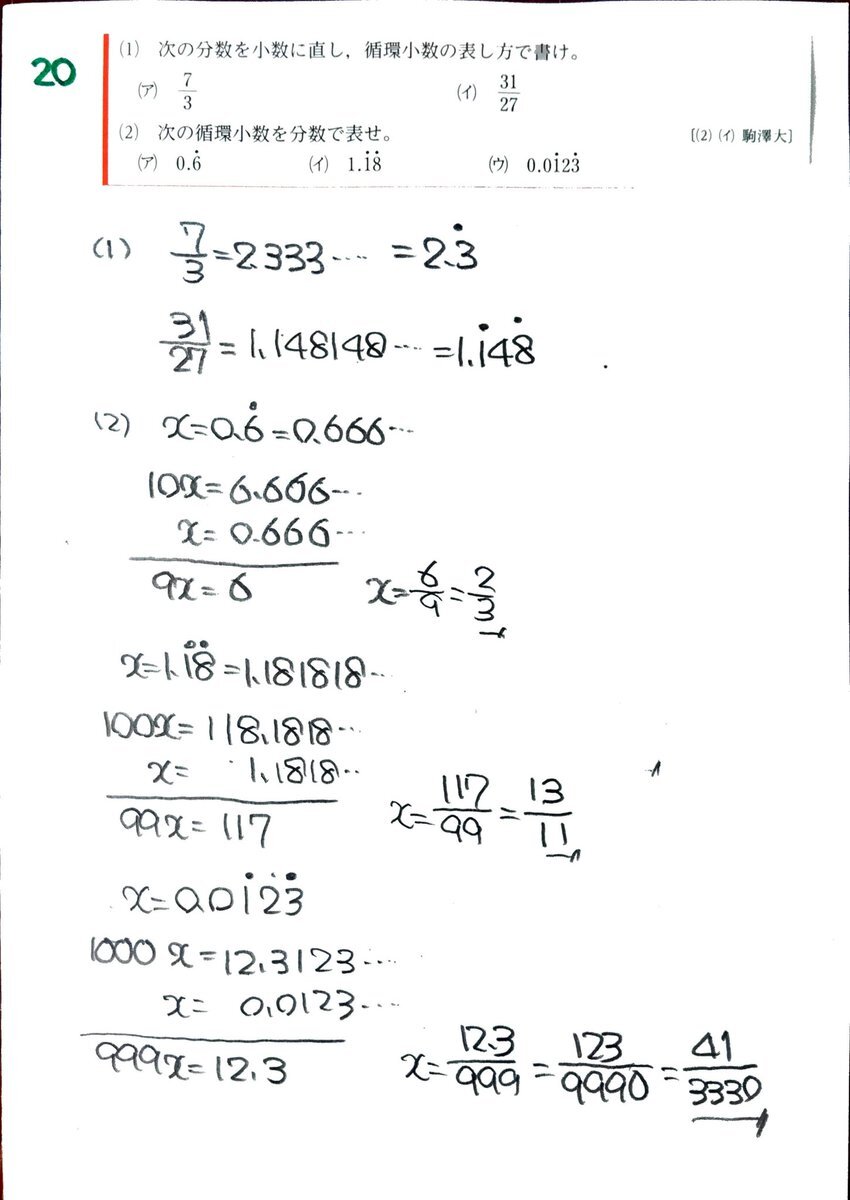 20
(1) 次の分数を小数に直し，循環小数の表し方で書け。
(ア) 7/3 (イ) 31/27
(2) 次の循環小数を分数で表せ。 [(2) (イ) 駒澤大]
(ア) 0.6̇ (イ) 1.1̇8̇ (ウ) 0.01̇23̇
(1) 7/3=2.333… =2.3̇
31/27=1.148148…=1.1̇48̇
(2) x=0.6̇=0.666…
10x=6.666…
x=0.666…
9x=6 x=6/9=2/3
x=1.1̇8̇=1.181818…
100x=118.1818…
x= 1.1818…
99x=117 x=117/99=13/11
x=0.01̇23̇
1000x=12.3123…
x= 0.0123…
999x=12.3 x=12.3/999=123/9990=41/3330